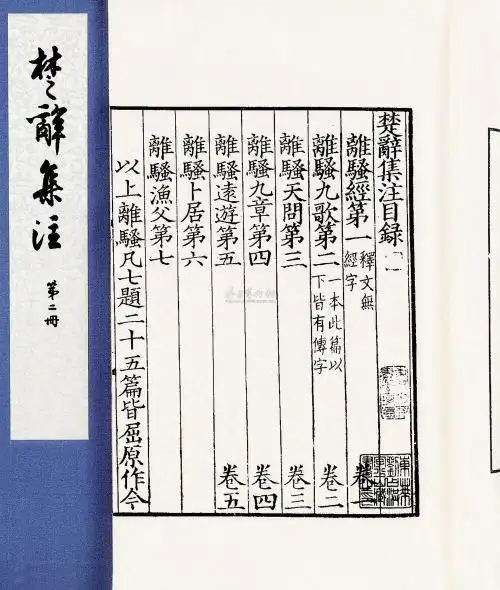 楚辭集注
第二冊
楚辭集注目録
離騷經第一 釋文無 經字 卷一
離騷九歌第二 一本此篇以 下皆有傳字 卷二
離騷天問第三 卷三
離騷九章第四 卷四
離騷遠遊第五 卷五
離騷卜居第六
離騷漁父第七
以上離騷凡七題二十五篇皆屈原作今